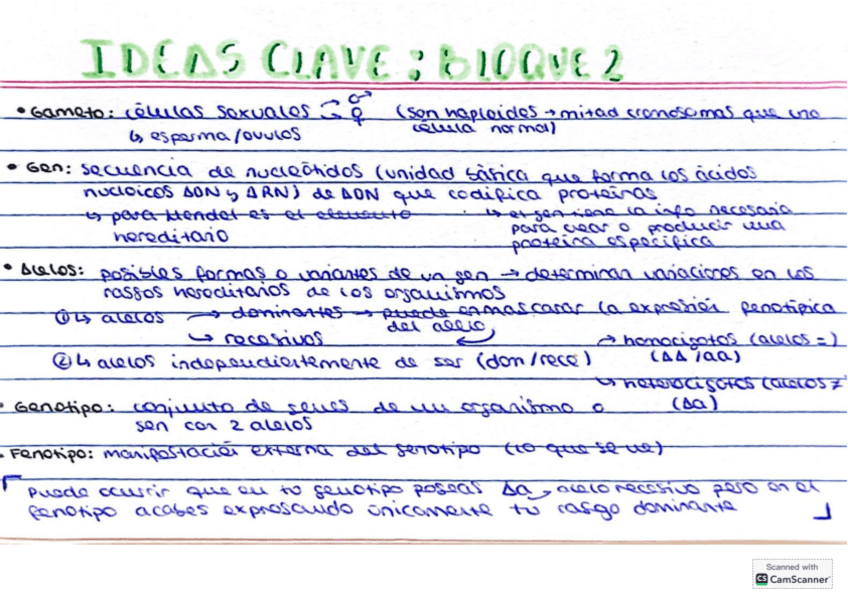 IDEAS CLAVE: BLOQUE 2
• Gameto: células sexuales → ♂ ♀ (son haploides → mitad cromosomas que una
↳ esperma/ovulos célula normal)
• Gen: secuencia de nucleótidos (unidad básica que forma los ácidos
nucleicos ADN y ARN) de ADN que codifica proteínas
↳ para Mendel es el elemento ↳ el gen tiene la info necesaria
hereditario para crear o producir una
proteína específica
• Alelos: posibles formas o variantes de un gen → determinan variaciones en los
rasgos hereditarios de los organismos
① ↳ alelos → dominantes → puede enmascarar la expresión fenotípica
del alelo
↳ recesivos → homocigotos (alelos =)
② ↳ alelos independientemente de ser (dom/rece) (AA/aa)
↳ heterocigotos (alelos ≠
• Genotipo: conjunto de genes de un organismo o (Aa)
gen con 2 alelos
• Fenotipo: manifestación externa del genotipo (lo que se ve)
Puede ocurrir que en tu genotipo poseas Aa, alelo recesivo pero en el
fenotipo acabes expresando únicamente tu rasgo dominante
Scanned with
CS CamScanner